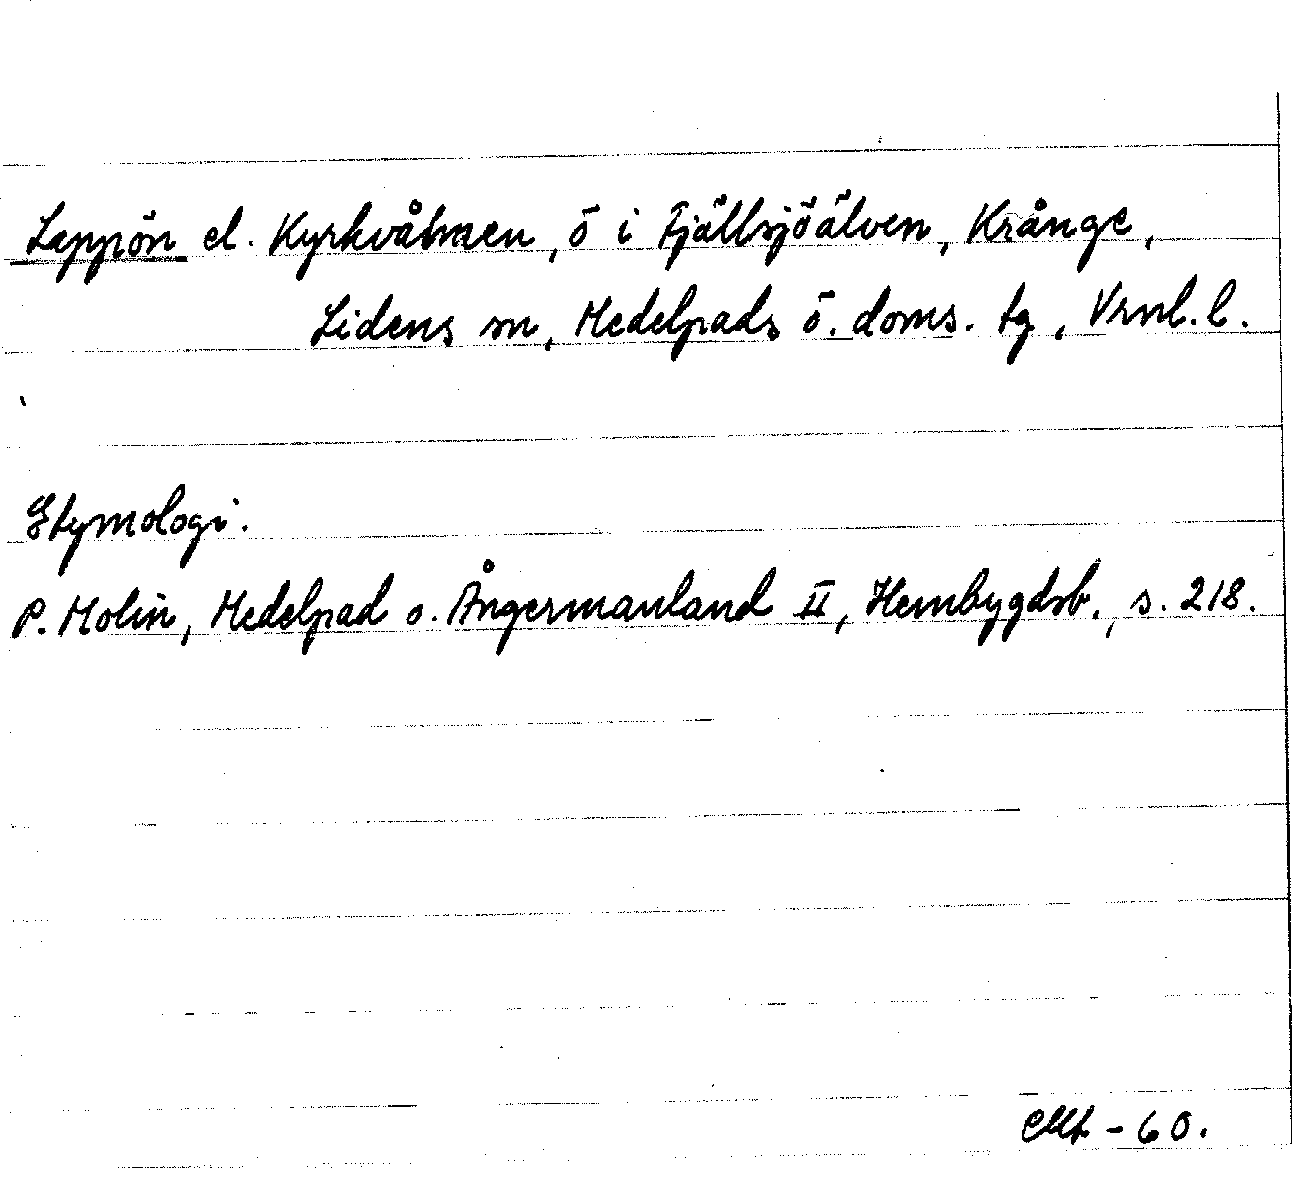 Lappön el. Kyrkvålmen, ö i Fjällsjöälven, Krånge,
Lidens sn, Medelpads ö. doms. tg, Vrnl. l.
Etymologi.
P. Molin, Medelpad o. Ångermanland II, Hembygdsb., s. 218.
-60.